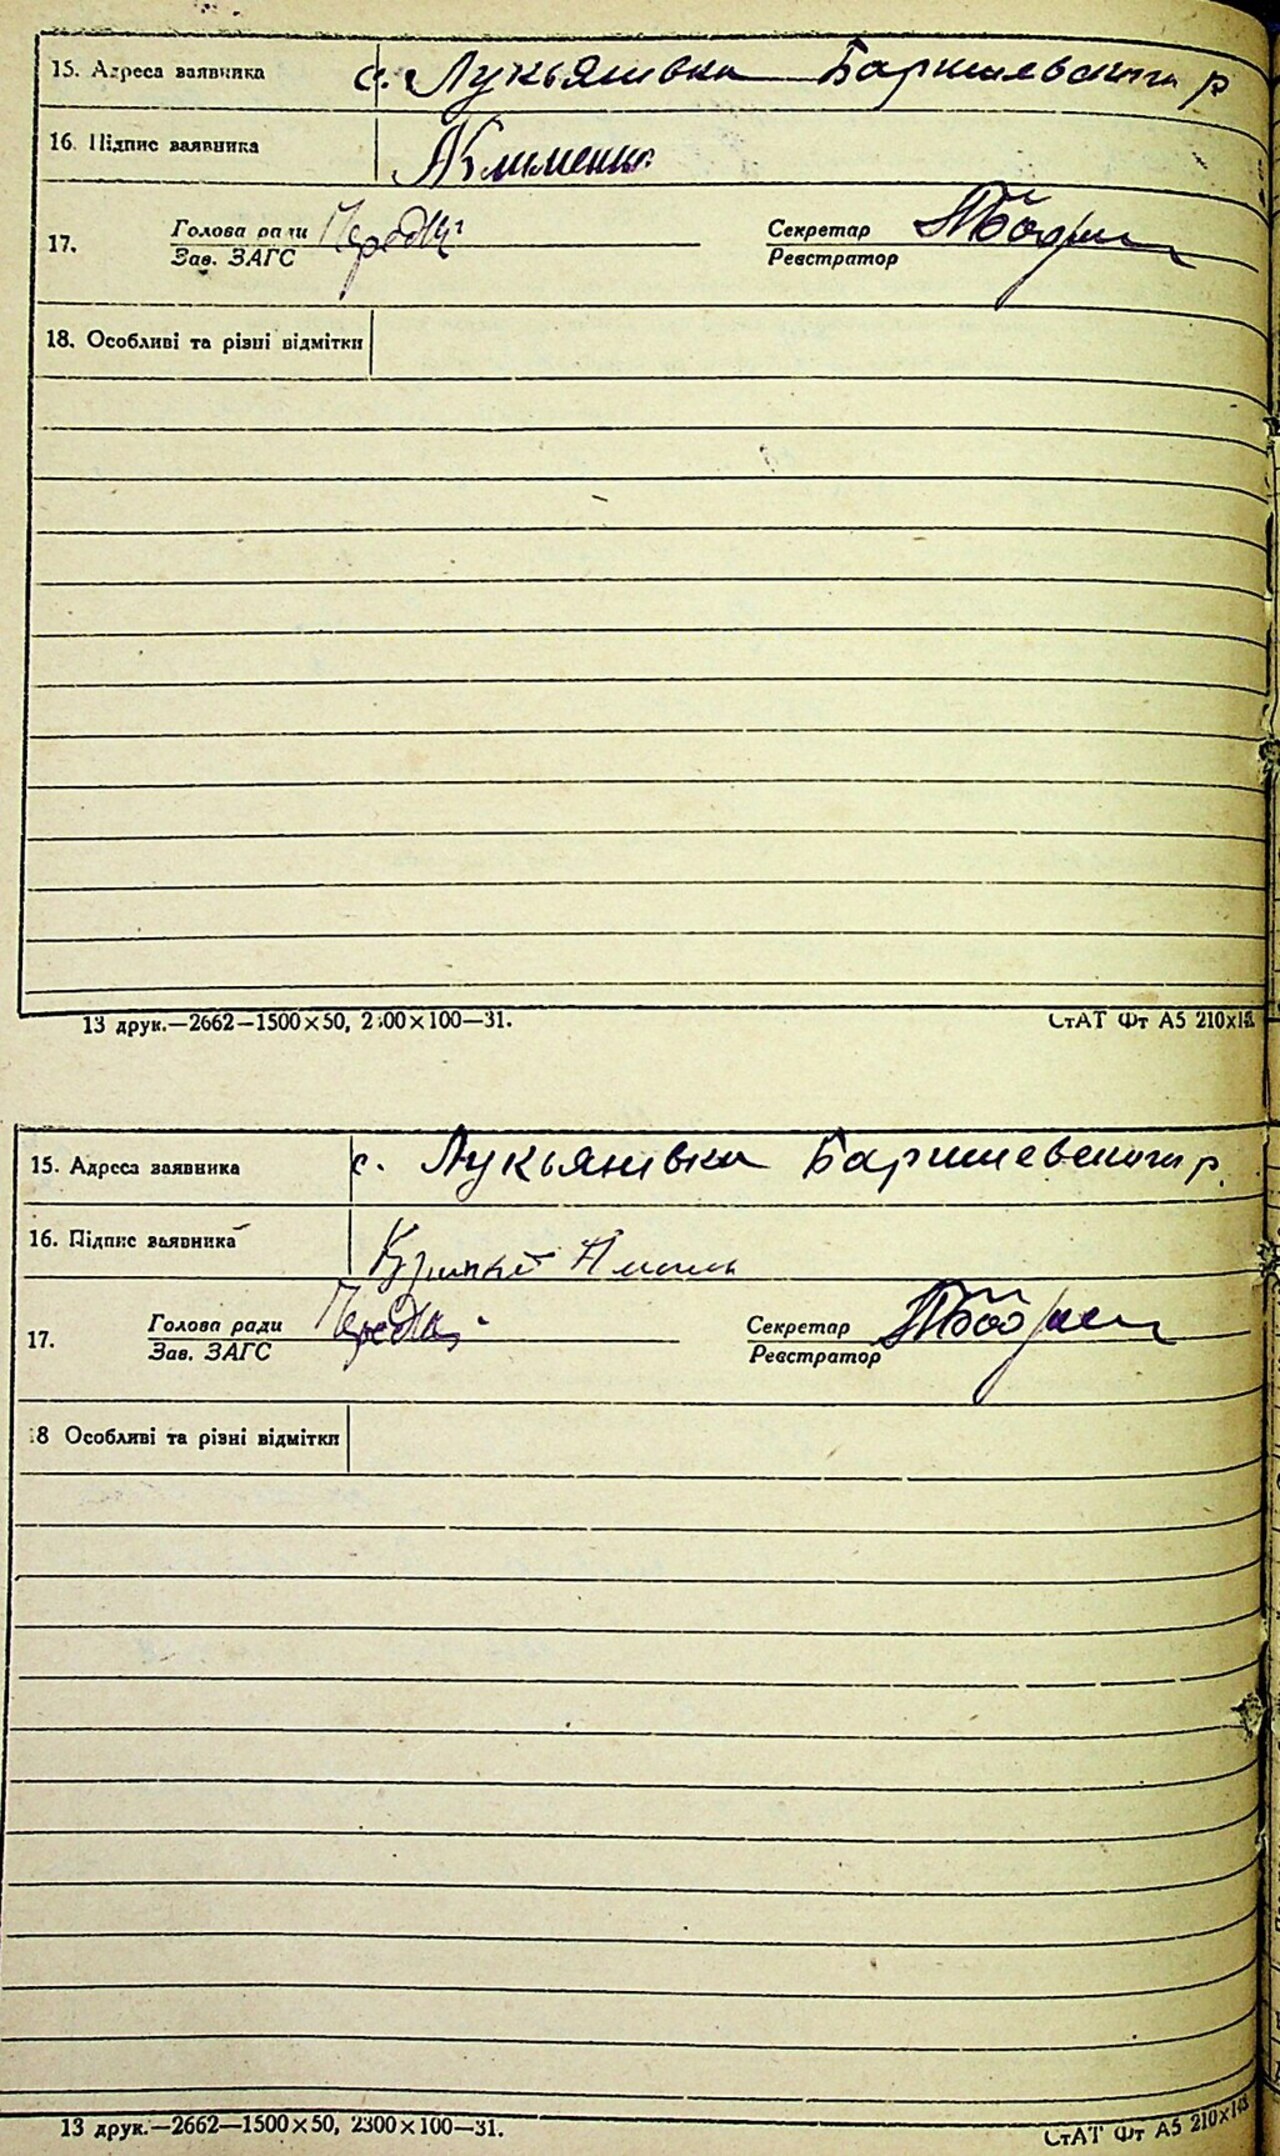 15. Адреса заявника с. Лукьянивка Баришевского р
16. Підпис заявника АКлименко
17. Голова ради Секретар
Зав. ЗАГС Реєстратор
18. Особливі та різні відмітки
13 друк.—2662—1500×50, 2300×100—31. СтАТ Фт А5 210х148
15. Адреса заявника с. Лукьянивка Баришевского р.
16. Підпис заявника
17. Голова ради Секретар
Зав. ЗАГС Реєстратор
18 Особливі та різні відмітки
13 друк.—2662—1500×50, 2300×100—31. СтАТ Фт А5 210х148